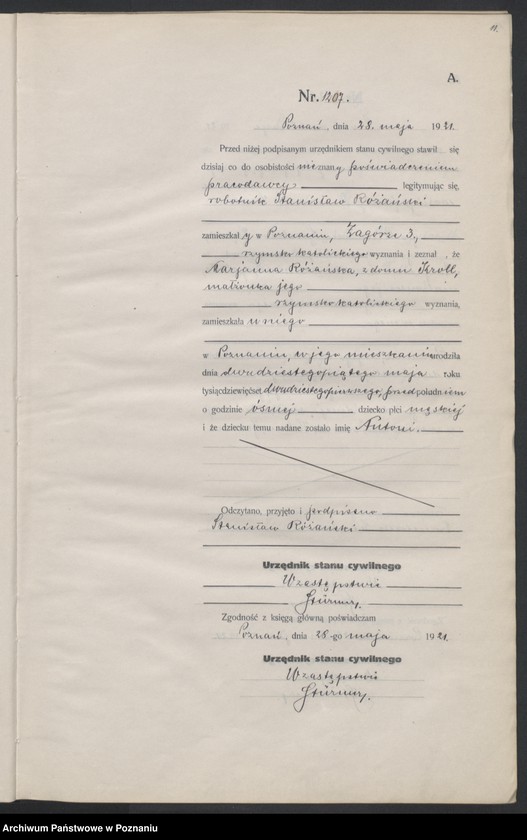 11.
A.
Nr. 1207.
Poznań, dnia 28. maja 1921.
Przed niżej podpisanym urzędnikiem stanu cywilnego stawił się
dzisiaj co do osobistości nieznany poświadczeniem
pracodawcy legitymując się,
robotnik Stanisław Różański
zamieszkały w Poznaniu, Zagórze 3.,
rzymsko katolickiego wyznania i zeznał, że
Marjanna Różańska, z domu Kroll,
małżonka jego
rzymsko katolickiego wyznania,
zamieszkała u niego
w Poznaniu, w jego mieszkaniu urodziła
dnia dwudziestegopiątego maja roku
tysiącdziewięćset dwudziestegopierwszego, przedpołudniem
o godzinie ósmej dziecko płci męskiej
i że dziecku temu nadane zostało imię Antoni.
Odczytano, przyjęto i podpisano
Stanisław Różański
Urzędnik stanu cywilnego
W zastępstwie
Zgodność z księgą główną poświadczam
Poznań, dnia 28-go maja 1921.
Urzędnik stanu cywilnego
W zastępstwie
Archiwum Państwowe w Poznaniu